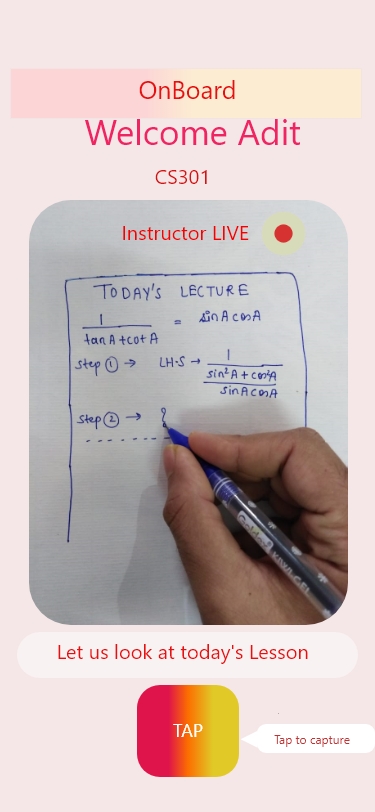 OnBoard
Welcome Adit
CS301
Instructor LIVE
TODAY'S LECTURE
1
tanA+cotA
= sinA cosA
Step ① → LH·S → 1
sin²A + cos²A
sinA cosA
Step ② →
Let us look at today's Lesson
TAP
Tap to capture